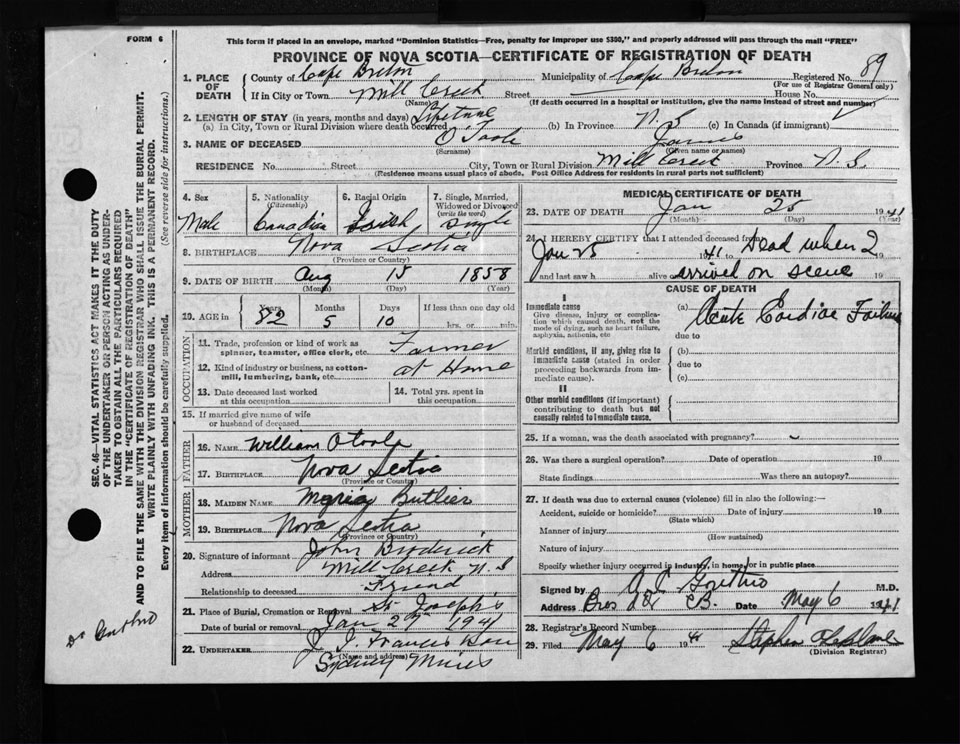 FORM 6
This form if placed in an envelope, marked "Dominion Statistics—Free, penalty for improper use $300," and properly addressed will pass through the mail "FREE"
PROVINCE OF NOVA SCOTIA—CERTIFICATE OF REGISTRATION OF DEATH
1. PLACE OF DEATH
County of Cape Breton Municipality of Cape Breton Registered No. 89
(For use of Registrar General only)
If in City or Town Mill Creek Street House No.
(Name) (If death occurred in a hospital or institution, give the name instead of street and number)
2. LENGTH OF STAY (in years, months and days) Lifetime
(a) In City, Town or Rural Division where death occurred (b) In Province N. S (c) In Canada (if immigrant)
3. NAME OF DECEASED O'Toole James
(Surname) (Given name or names)
RESIDENCE No. Street City, Town or Rural Division Mill Creek Province N. S.
(Residence means usual place of abode. Post Office Address for residents in rural parts not sufficient)
4. Sex Male
5. Nationality (Citizenship) Canadian
6. Racial Origin
7. Single, Married, Widowed or Divorced (write the word)
8. BIRTHPLACE Nova Scotia
(Province or Country)
9. DATE OF BIRTH Aug 15 1858
(Month) (Day) (Year)
10. AGE in Years 82 Months 5 Days 10 If less than one day old
hrs. or min.
OCCUPATION
11. Trade, profession or kind of work as spinner, teamster, office clerk, etc. Farmer
12. Kind of industry or business, as cotton-mill, lumbering, bank, etc. at Home
13. Date deceased last worked at this occupation
14. Total yrs. spent in this occupation
15. If married give name of wife or husband of deceased
FATHER
16. NAME William Otoole
17. BIRTHPLACE Nova Scotia
(Province or Country)
MOTHER
18. MAIDEN NAME Butler
19. BIRTHPLACE Nova Scotia
(Province or Country)
20. Signature of informant John Broderick
Address Mill Creek N. S
Relationship to deceased Friend
21. Place of Burial, Cremation or Removal St Joseph's
Date of burial or removal Jan 27 1941
22. UNDERTAKER J. Francis
(Name and address)
Sydney Mines
MEDICAL CERTIFICATE OF DEATH
23. DATE OF DEATH Jan 25 1941
(Month) (Day) (Year)
24. I HEREBY CERTIFY that I attended deceased from
Jan 25 1941 to Dead when I
and last saw h alive on arrived on scene 19
CAUSE OF DEATH
I
Immediate cause
Give disease, injury or complication which caused death, not the mode of dying, such as heart failure, asphyxia, asthenia, etc
(a) Acute Cardiac Failure
due to
Morbid conditions, if any, giving rise to immediate cause (stated in order proceeding backwards from immediate cause).
(b)
due to
(c)
II
Other morbid conditions (if important) contributing to death but not causally related to immediate cause.
25. If a woman, was the death associated with pregnancy?
26. Was there a surgical operation? Date of operation 19
State findings Was there an autopsy?
27. If death was due to external causes (violence) fill in also the following:—
Accident, suicide or homicide? Date of injury 19
(State which)
Manner of injury
(How sustained)
Nature of injury
Specify whether injury occurred in industry, in home, or in public place
Signed by M.D.
Address Bras d'Or CB. Date May 6 1941
28. Registrar's Record Number
29. Filed May 6 1941 Stephen
(Division Registrar)
SEC. 46—VITAL STATISTICS ACT MAKES IT THE DUTY
OF THE UNDERTAKER OR PERSON ACTING AS UNDER-
TAKER TO OBTAIN ALL THE PARTICULARS REQUIRED
IN THE "CERTIFICATE OF REGISTRATION OF DEATH"
AND TO FILE THE SAME WITH THE DIVISION REGISTRAR WHO SHALL ISSUE THE BURIAL PERMIT.
WRITE PLAINLY WITH UNFADING INK. THIS IS A PERMANENT RECORD.
Every item of information should be carefully supplied. (See reverse side for instructions.)
Dr